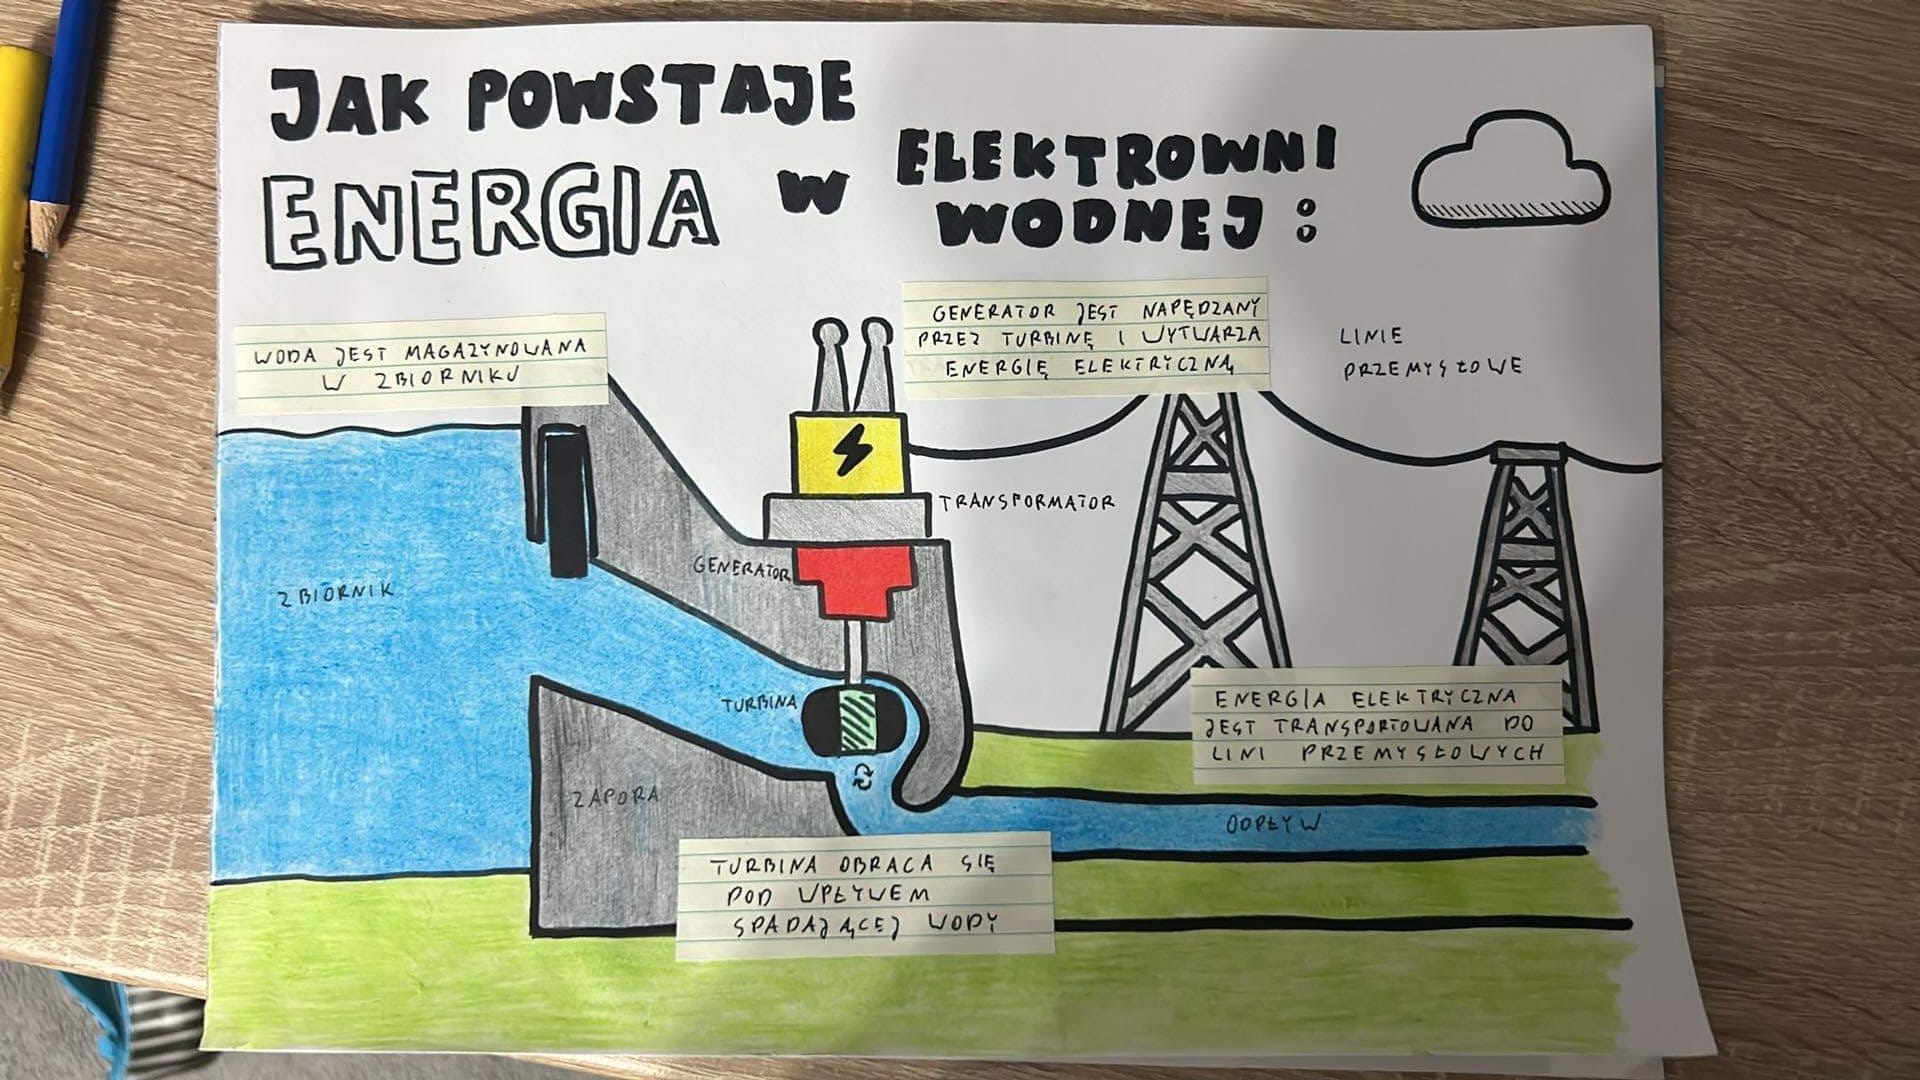 JAK POWSTAJE
ENERGIA W ELEKTROWNI
WODNEJ:
WODA JEST MAGAZYNOWANA
W ZBIORNIKU
GENERATOR JEST NAPĘDZANY
PRZEZ TURBINĘ I WYTWARZA
ENERGIĘ ELEKTRYCZNĄ
LINIE
PRZEMYSŁOWE
TRANSFORMATOR
GENERATOR
ZBIORNIK
TURBINA
ENERGIA ELEKTRYCZNA
JEST TRANSPORTOWANA DO
LINI PRZEMYSŁOWYCH
ZAPORA
ODPŁYW
TURBINA OBRACA SIĘ
POD WPŁYWEM
SPADAJĄCEJ WODY